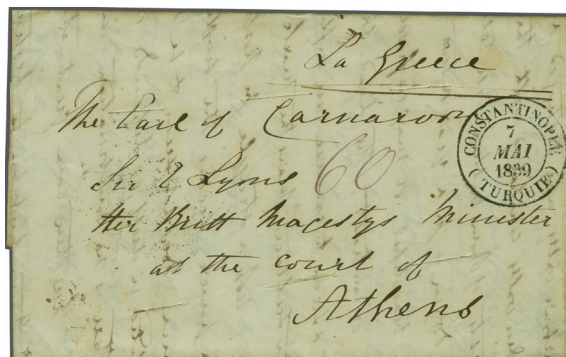 La Greece
The Earl of Carnarvon
60
Sir E Lyons
Her Britt Magestys Minister
at the Court of
Athens
CONSTANTINOPLE
7
MAI
1839
(TURQUIE)